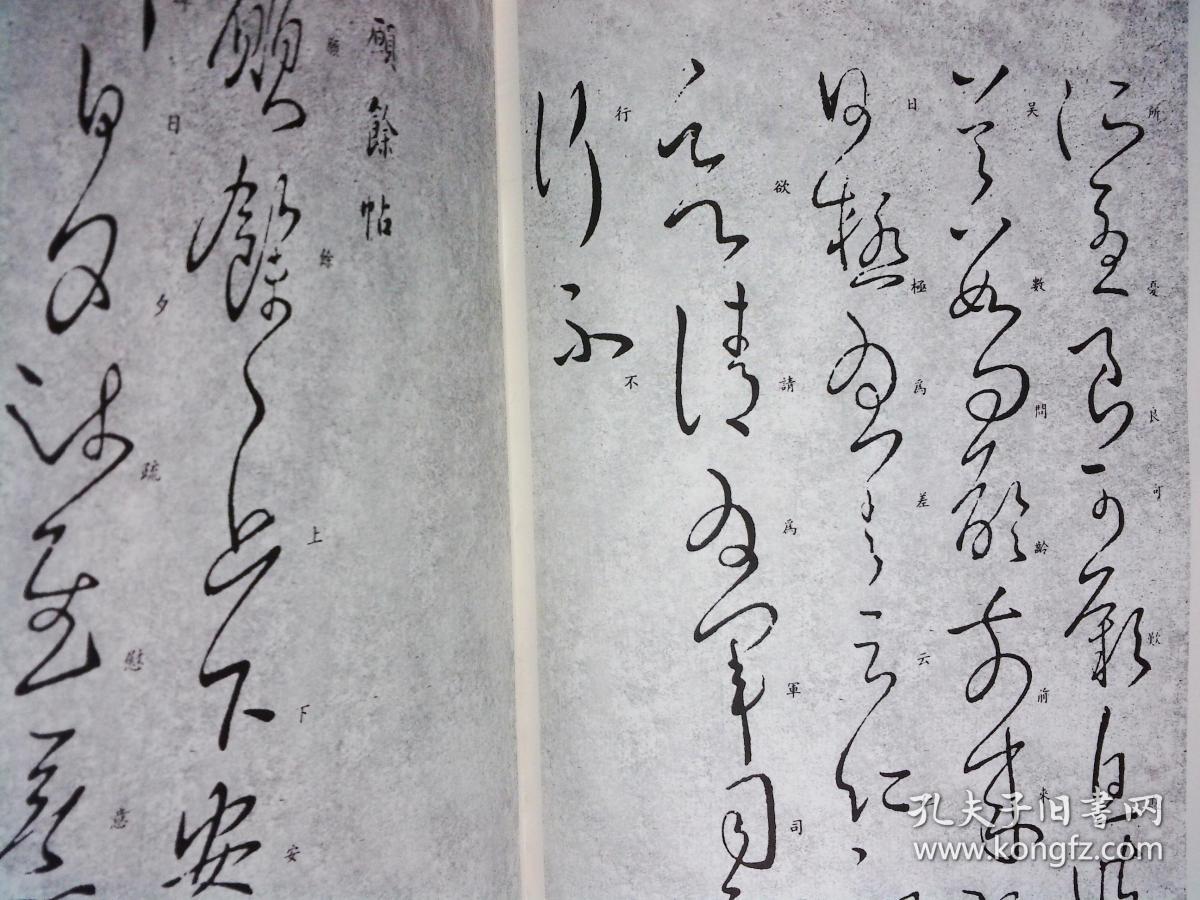 所憂良可歎
吴數問齡前来
日極為差云仁
欲請為軍司
行不
願餘帖
願餘上下安
日夕疏慰意
孔夫子旧书网
www.kongfz.com